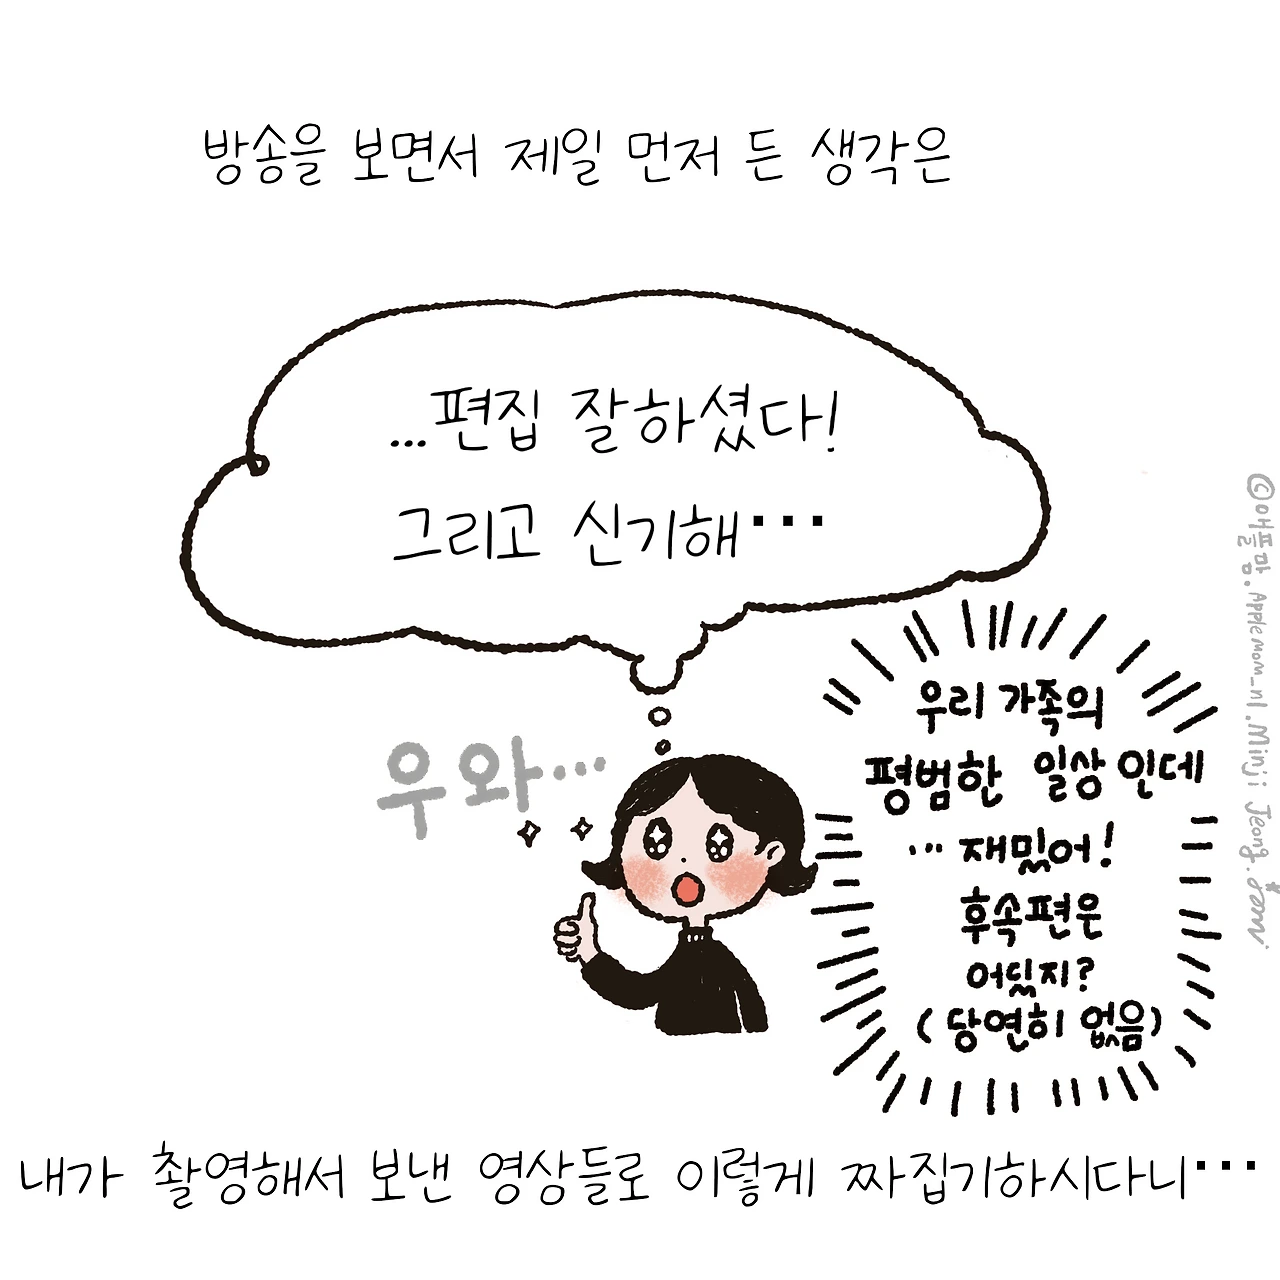 방송을 보면서 제일 먼저 든 생각은
...편집 잘하셨다!
그리고 신기해...
우와...
우리 가족의
평범한 일상인데
... 재밌어!
후속편은
어딨지?
(당연히 없음)
내가 촬영해서 보낸 영상들로 이렇게 짜집기하시다니...
©애플맘.Applemom_nl.Minji Jeong.